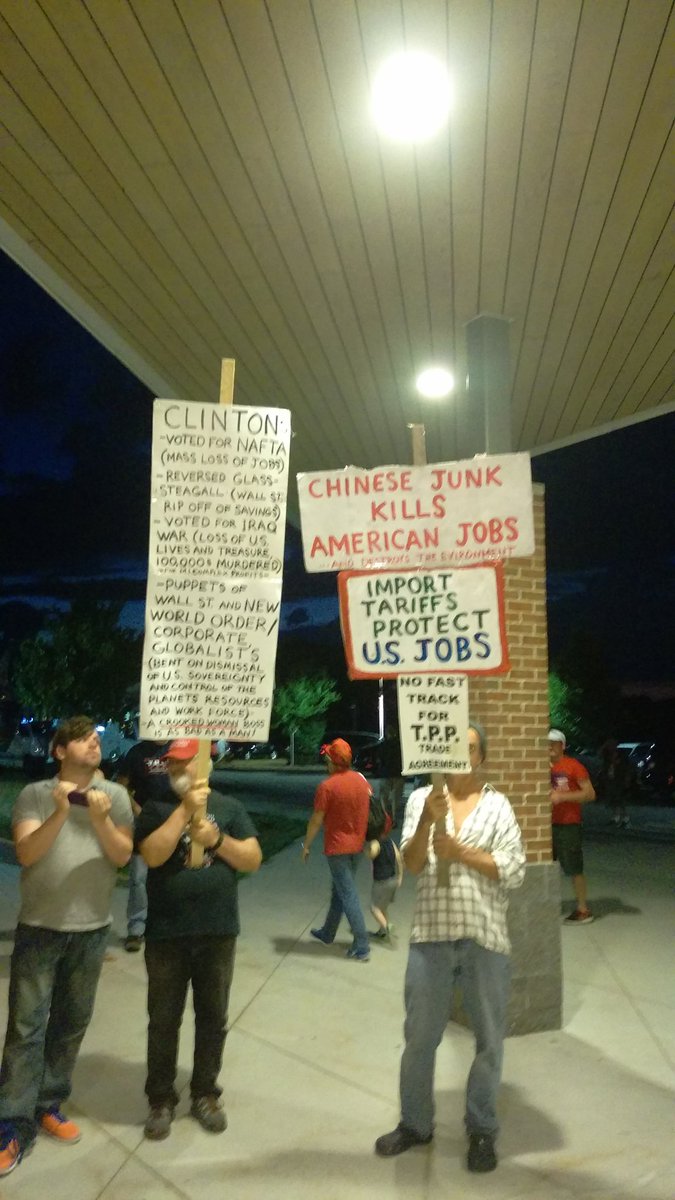 CLINTON:
-VOTED FOR NAFTA
(MASS LOSS OF JOBS)
-REVERSED GLASS-
STEAGALL (WALL ST.
RIP OFF OF SAVINGS)
-VOTED FOR IRAQ
WAR (LOSS OF U.S.
LIVES AND TREASURE,
100,000s MURDERED)
-PUPPETS OF
WALL ST. AND NEW
WORLD ORDER/
CORPORATE
GLOBALIST'S
(BENT ON DISMISSAL
OF U.S. SOVEREIGNTY
AND CONTROL OF THE
PLANETS RESOURCES
AND WORK FORCE)
-A CROOKED WOMAN BOSS
IS AS BAD AS A MAN!
CHINESE JUNK
KILLS
AMERICAN JOBS
...AND DESTROYS THE EVIRONMENT
IMPORT
TARIFFS
PROTECT
U.S. JOBS
NO FAST
TRACK
FOR
T.P.P.
TRADE
AGREEMENT